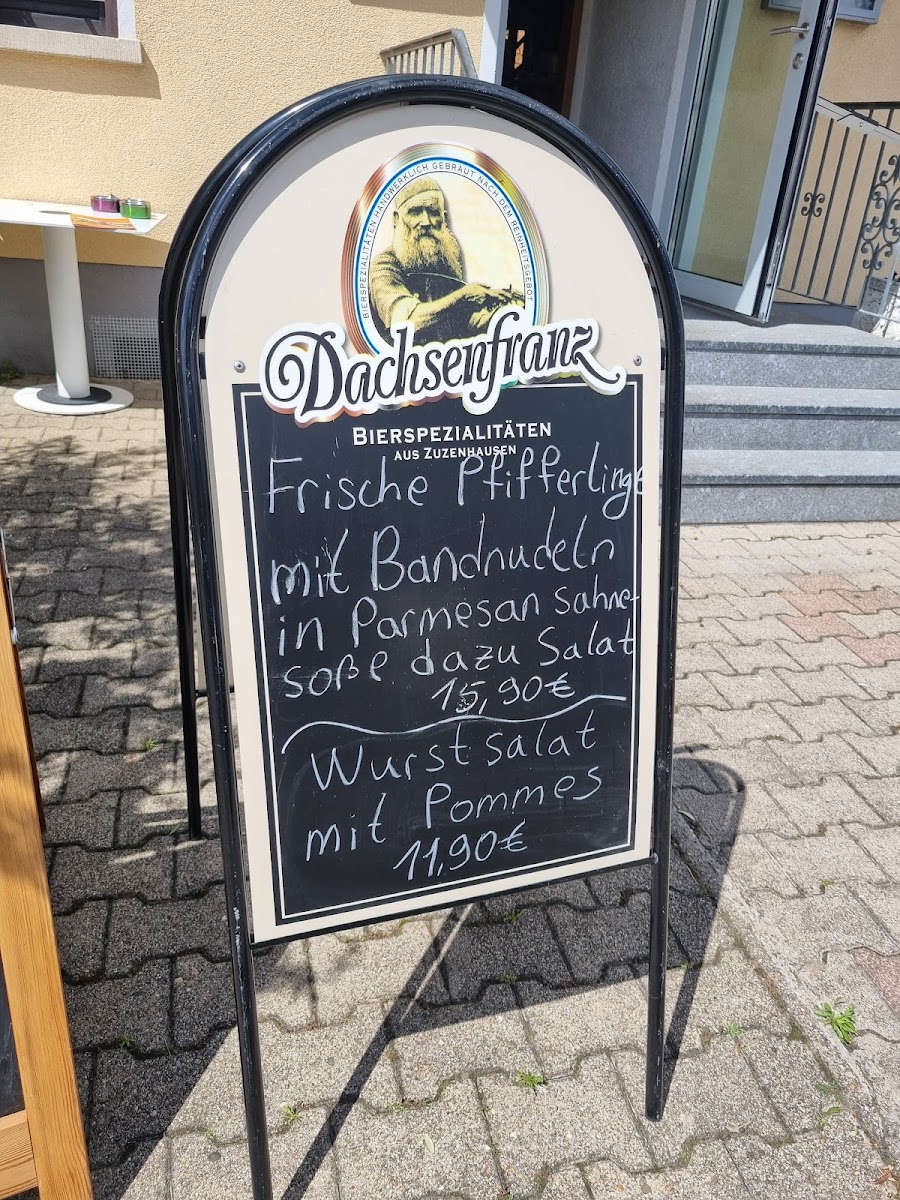 BIERSPEZIALITÄTEN HANDWERKLICH GEBRAUT NACH DEM REINHEITSGEBOT
Dachsenfranz
BIERSPEZIALITÄTEN
AUS ZUZENHAUSEN
Frische Pfifferlinge
mit Bandnudeln
in Parmesan Sahne-
soße dazu Salat
15,90€
Wurstsalat
mit Pommes
11,90€